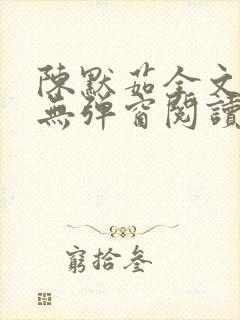 陳默茹全文
無彈窗閱讀
窮拾叁